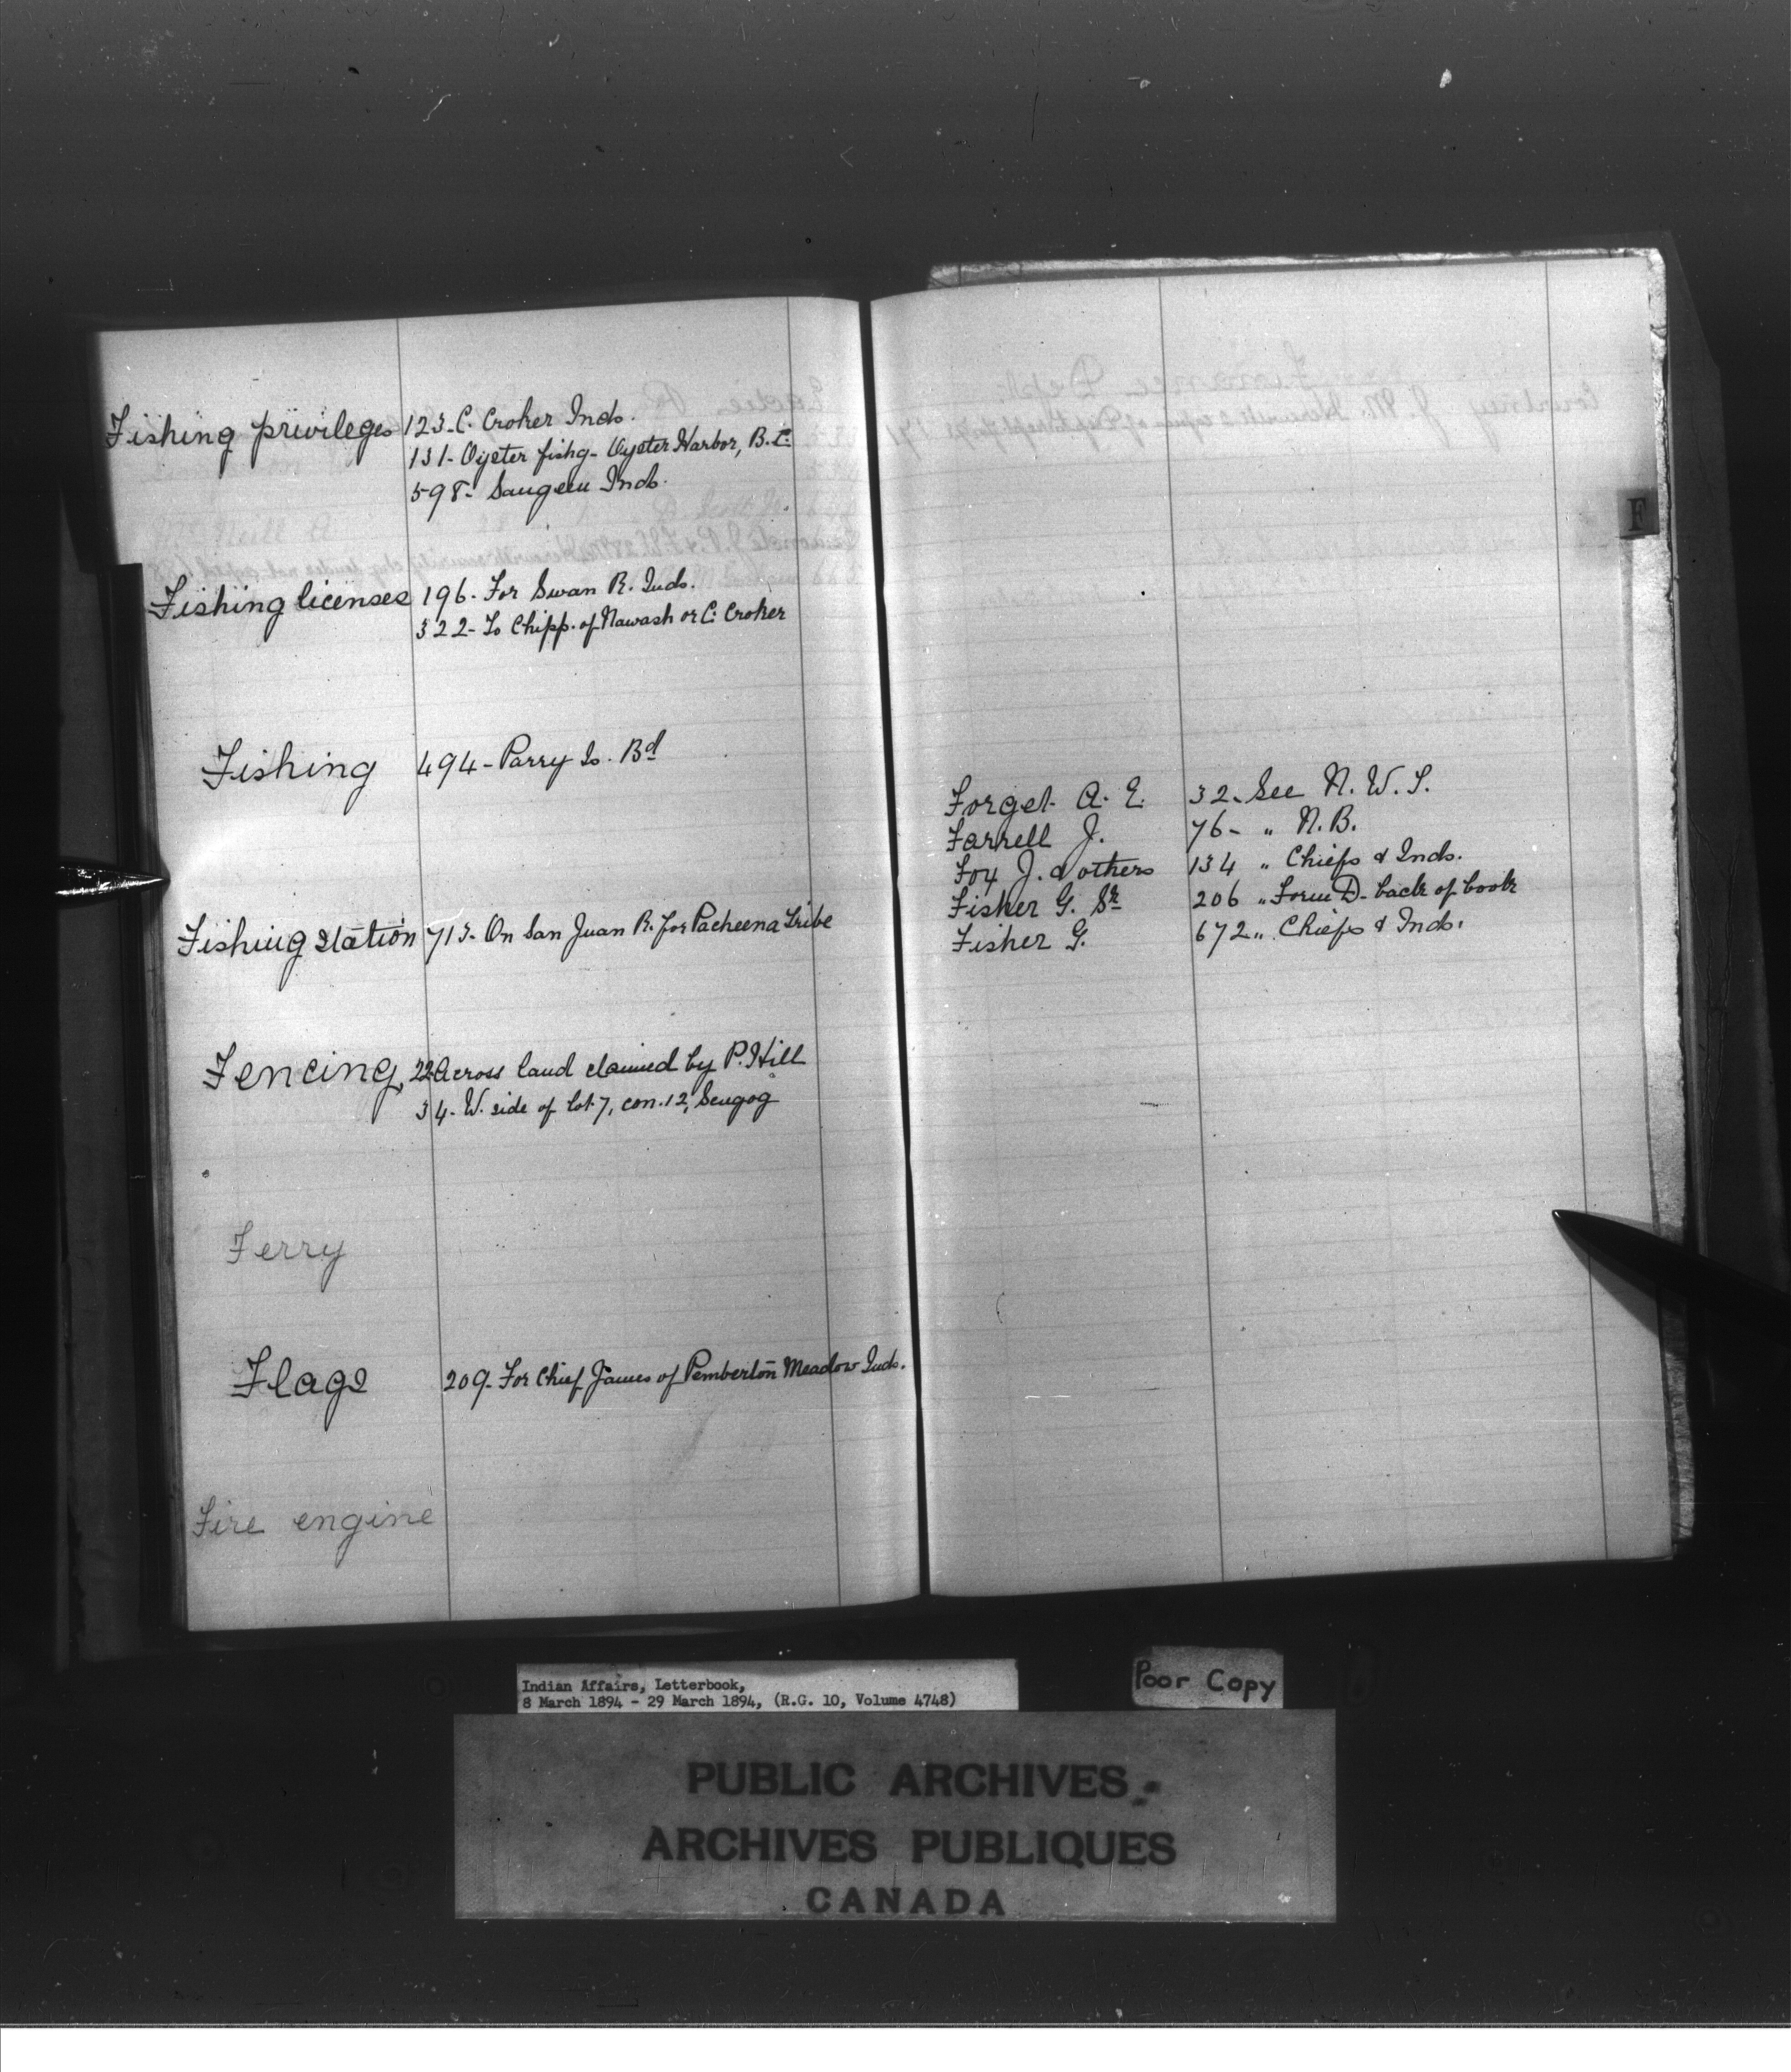 Fishing privileges 123- C. Croker Inds.
131- Oyster fishg- Oyster Harbor, B.C.
598- Saugeen Inds.
Fishing licenses 196- For Swan R. Inds.
322- To Chipp. of Nawash or C. Croker
Fishing 494- Parry Is. Bd
Fishing station 713- On San Juan R. for Pacheena Tribe
Fencing, 22 Across land claimed by P. Hill
34- W. side of lot 7, con. 12, Scugog
Ferry
Flags 209- For Chief James of Pemberton Meadow Inds.
Fire engine
F
Forget A. E. 32- See N. W. T.
Farrell J. 76- " N.B.
Foy J. & others 134 " Chiefs & Inds.
Fisher G. Sr 206 " Form D- back of book
Fisher G. 672 " Chiefs & Inds.
Indian Affairs, Letterbook,
8 March 1894 - 29 March 1894, (R.G. 10, Volume 4748)
Poor Copy
PUBLIC ARCHIVES
ARCHIVES PUBLIQUES
CANADA